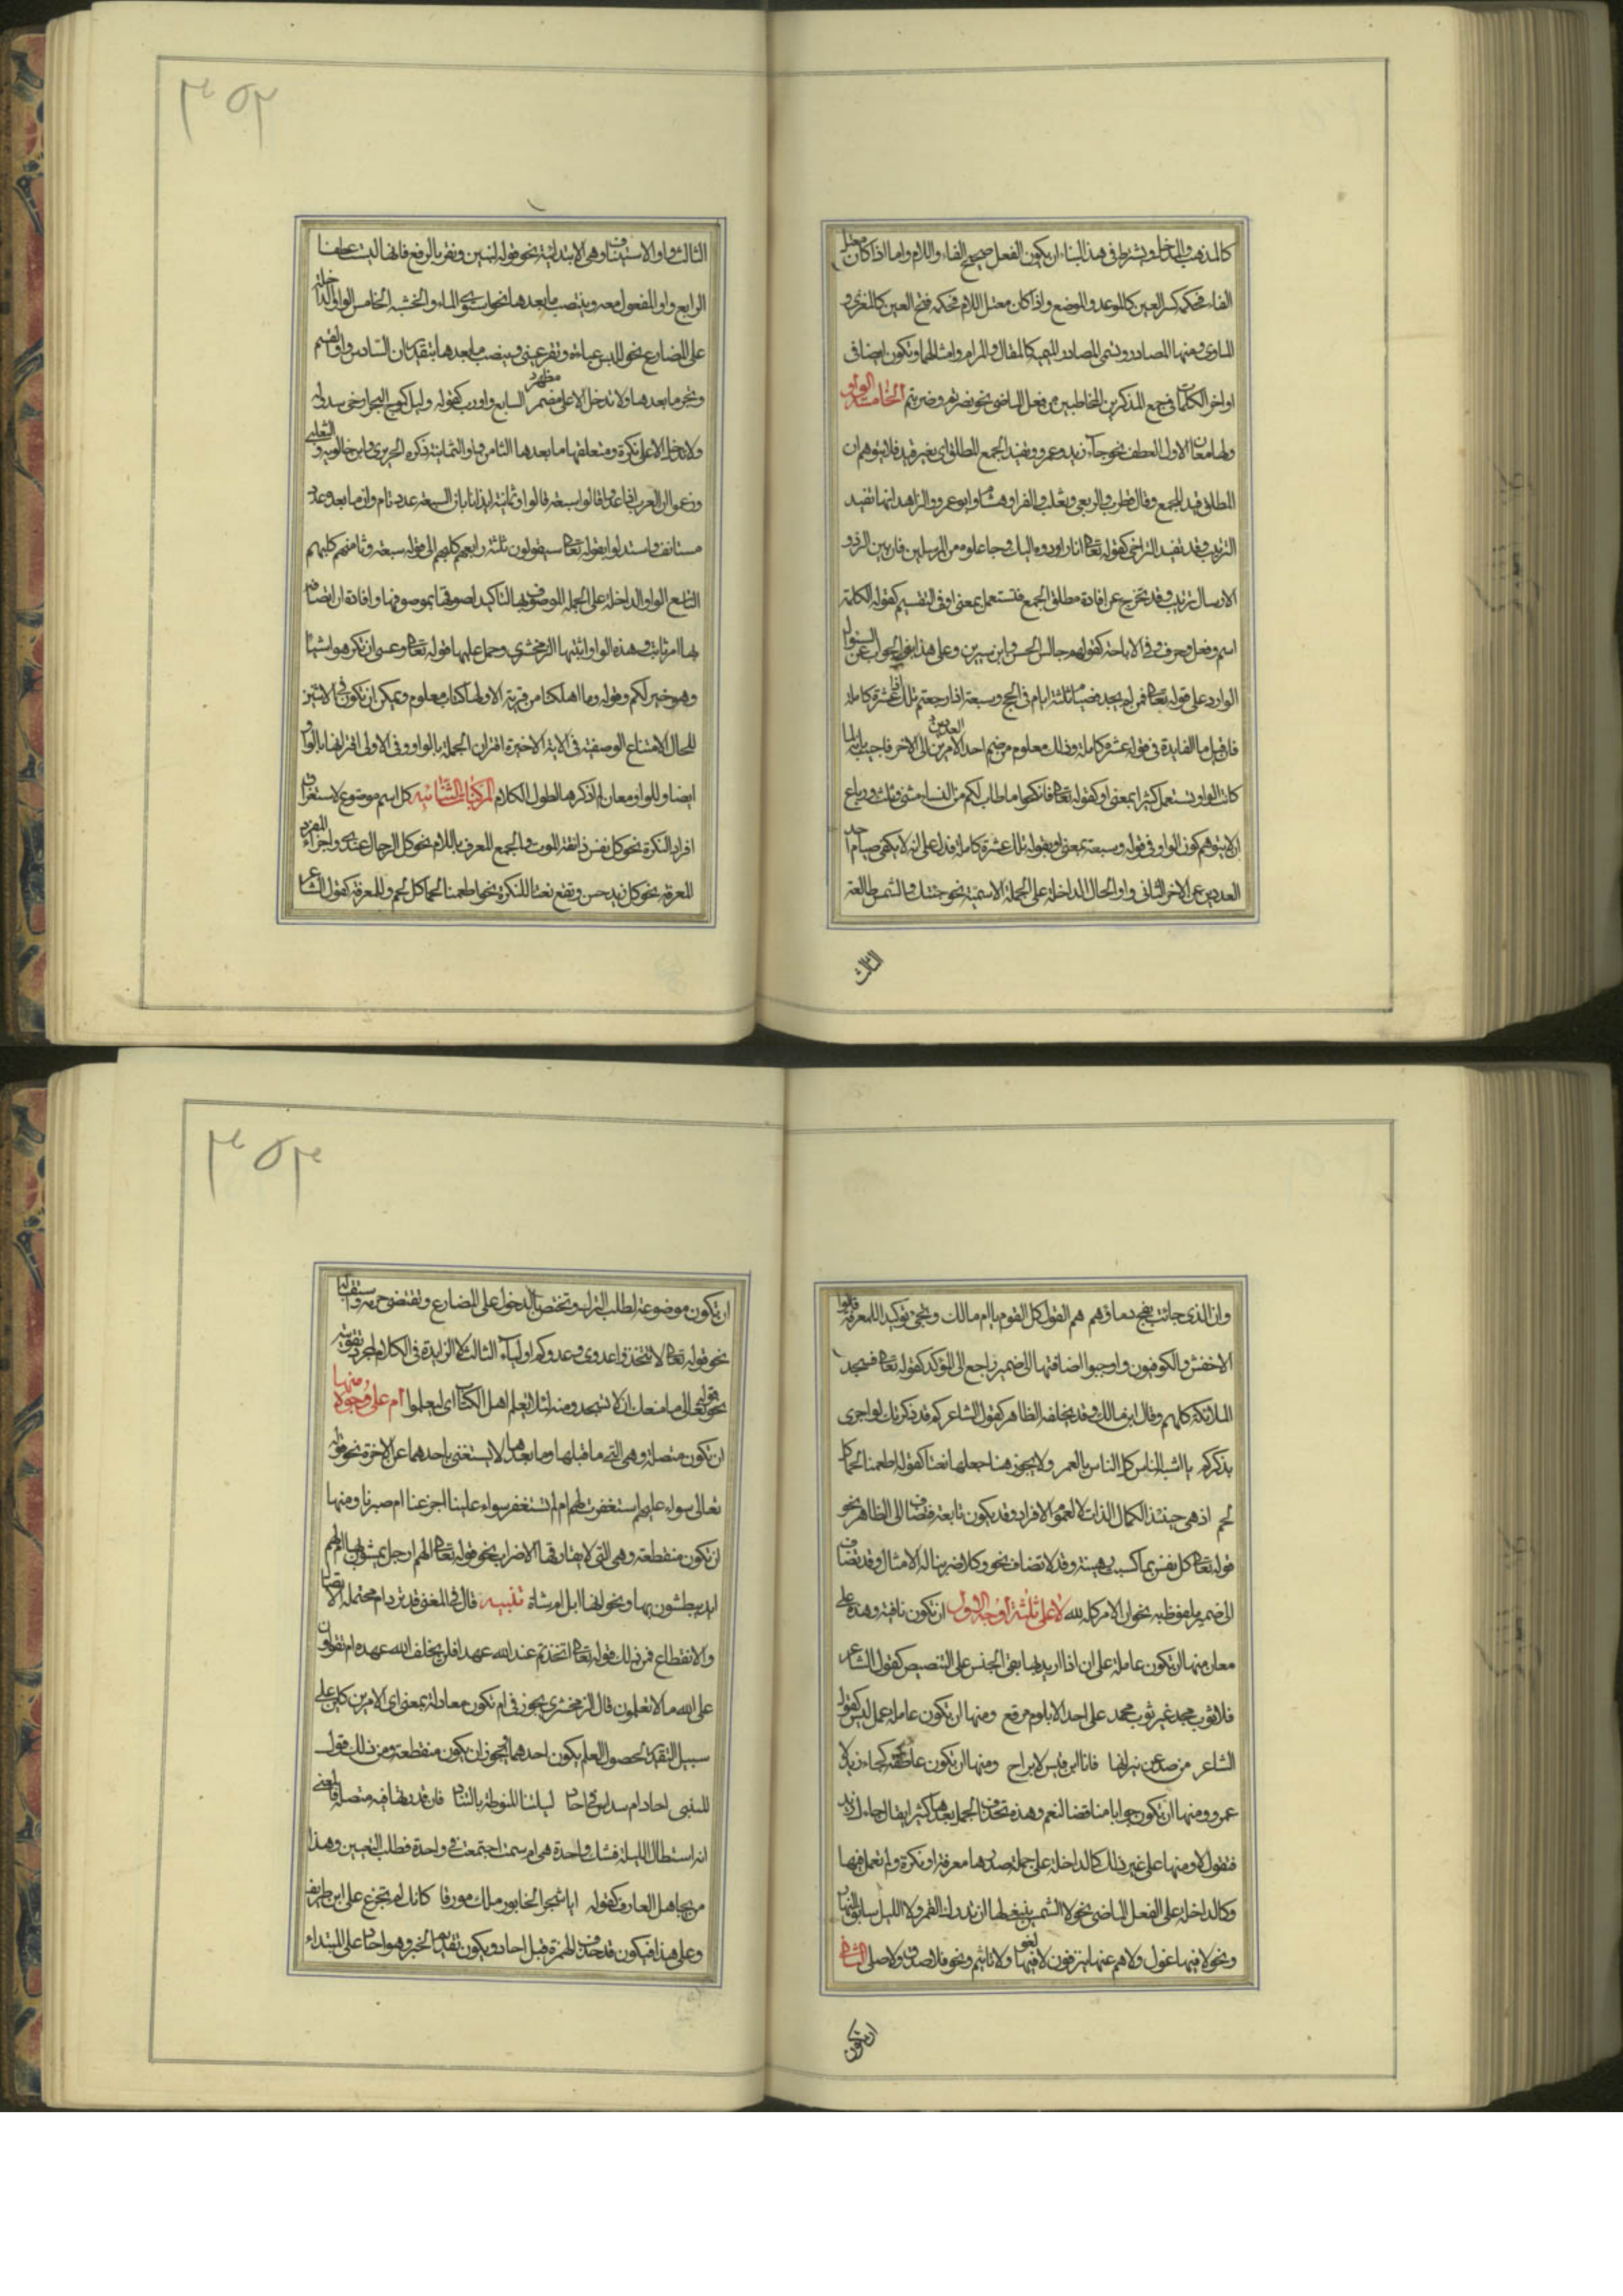 ٣٥٢
كالمذهب والمدخل ويشترط في هذا البناء ان يكون الفعل صحيح الفاء واللام واما اذا كان معتل
الفاء فحكمه كسر العين كالموعد والموضع واذا كان معتل اللام فحكمه فتح العين كالمغزى و
الماوى ومنها المصادر وتسمى المصادر الميمية كالمقال والمرام وامثالهما وتكون ايضا فى
اواخر الكلمات فى جمع المذكرين المخاطبين من فعل الماضى نحو نصرتم وضربتم الخامسة الواو
ولها معان الاول العطف نحو جاء زيد وعمرو وتفيد الجمع المطلق اى بغير قيد فلا يتوهم ان
المطلق قيد للجمع وقال قطرب والربعى وثعلب والفرا وهشام وابو عمرو والزاهد انها تفيد
الترتيب وقد تفيد التراخى كقوله تعالى انا رادوه اليك وجاعلوه من المرسلين فان بين الرد و
الارسال ترتيب وقد تخرج عن افادة مطلق الجمع فتستعمل بمعنى او فى التقسيم كقوله الكلمة
اسم وفعل وحرف وفى الاباحة كقولهم جالس الحسن وابن سيرين وعلى هذا يقع الجواب عن السئوال
الوارد على قوله تعالى فمن لم يجد فصيام ثلثة ايام فى الحج وسبعة اذا رجعتم تلك عشرة كاملة
فان قيل ما الفايدة فى قوله عشرة كاملة وذلك معلوم من ضم احد الامرين العددين الى الاخر فاجيب بانه لما
كانت الواو تستعمل كثيرا بمعنى او كقوله تعالى فانكحوا ما طاب لكم من النساء مثنى وثلث ورباع
لان لا يتوهم كون الواو فى قوله وسبعة بمعنى او بقوله تلك عشرة كاملة فدل على انه لا يكفى صيام احد
العددين عن الاخر الثانى واو الحال الداخلة على الجملة الاسمية نحو جئتك والشمس طالعة
الثالث
الثالث واو الاستيناف وهى الابتدائية نحو قوله لنبين ونقر بالرفع فانها ليست عاطفا
الرابع واو المفعول معه وينتصب ما بعدها نحو استوى الماء والخشبة الخامس الواو الداخلة
على المضارع نحو للبس عباءة وتقر عينى وينصب ما بعدها بتقدير ان السادس واو القسم
وتجر ما بعدها ولا تدخل الا على مضمر مظهر السابع واو رب كقوله وليل كموج البحر ارخى سدوله
ولا تدخل الا على نكرة ومتعلقها ما بعدها الثامن واو الثمانية ذكره الحريرى وابن خالويه والثعلبى
وزعموا ان العرب اذا عدوا قالوا سبعة قالوا وثمانية ايذانا بان السبعة عدد تام وان ما بعد وعدد
مستانف واستدلوا بقوله تعالى سيقولون ثلثة رابعهم كلبهم الى قوله سبعة وثامنهم كلبهم
التاسع الواو الداخلة على الجملة الموصوف بها لتاكيد لصوقها بموصوفها وافادة ان اتصافه
بها امر ثابت وهذه الواو اثبتها الزمخشرى وحمل عليها قوله تعالى وعسى ان تكرهوا شيئا
وهو خير لكم وقوله وما اهلكنا من قرية الا ولها كتاب معلوم ويمكن ان تكون فى الايتين
للحال لامتناع الوصفية فى الاية الاخيرة اقتران الجملة بالواو وفى الاولى اقترانها بالواو
ايضا وللواو معان لم اذكرها لطول الكلام المركبات الثنائية كل اسم موضوع لاستغراق
افراد النكرة نحو كل نفس ذائقة الموت والجمع المعرف باللام نحو كل الرجال عندى واجزاء المفرد
المعرفة نحو كل زيد حسن وتقع نعتا للنكرة نحو اطعمنا لحما كل لحم وللمعرفة كقول الشاعر
٣٥٣
وان الذى حانت بفلج دماؤهم هم القوم كل القوم يا ام مالك ويجئ توكيدا للمعرفة قالوا
الاخفش والكوفيون واوجبوا اضافتها الى ضمير راجع الى المؤكد كقوله تعالى فسجد
الملائكة كلهم وقال ابن مالك وقد يخلفه الظاهر كقول الشاعر كم قد ذكرتك لو اجزى
بذكركم يا اشبه الناس كل الناس بالقمر ولا يجوز هنا جعلها نعتا كقوله اطعمنا لحما كل
لحم اذ هى حينئذ لكمال الذات لا لعموم الافراد وقد يكون تابعة فتضاف الى الظاهر نحو
قوله تعالى كل نفس بما كسبت رهينة وقد لا تضاف نحو وكلا ضربنا له الامثال وقد تضاف
الى ضمير ملفوظ به نحو ان الامر كله لله لا على ثلثة اوجه الاول ان تكون نافية وهذه على
معان منها ان تكون عاملة على ان اذا اريد بها نفى الجنس على التنصيص كقول الشاعر
فلا ثوب مجد غير ثوب محمد على احد الا بلؤم مرقع ومنها ان تكون عاملة عمل ليس كقول
الشاعر من صد عن نيرانها فانا ابن قيس لا براح ومنها ان تكون عاطفة كجاء زيد لا
عمرو ومنها ان تكون جوابا مناقضا لنعم وهذه تحذف الجمل بعدها كثيرا يقال اجاءك زيد
فتقول لا ومنها على غير ذلك كالداخلة على جملة صدرها معرفة او نكرة ولم تعمل فيها
وكالداخلة على الفعل الماضى نحو لا الشمس ينبغى لها ان تدرك القمر ولا الليل سابق النهار
ونحو لا فيها غول ولا هم عنها ينزفون لا لغو فيها ولا تاثيم ونحو فلا صدق ولا صلى الثانى
ان تكون
ان تكون موضوعة لطلب الترك وتختص بالدخول على المضارع وتقتضى جزمه واستقباله
نحو قوله تعالى لا تتخذوا عدوى وعدوكم اولياء الثالث لا الزايدة فى الكلام لمجرد تقويته
نحو قوله تعالى ما منعك ان لا تسجد ومنه لئلا يعلم اهل الكتاب اى ليعلموا ام على وجوه منها
ان تكون متصلة وهى التى ما قبلها وما بعدها لا يستغنى باحدهما عن الاخرة نحو قوله
تعالى سواء عليهم استغفرت لهم ام لم تستغفر سواء علينا اجزعنا ام صبرنا ومنها
ان تكون منقطعة وهى التى لا يفارقها الاضراب نحو قوله تعالى الهم ارجل يمشون بها ام لهم
ايد يبطشون بها ونحو انها لابل ام شاة تنبيه قال فى المغنى قد ترد ام محتملة الاتصال
والانقطاع فمن ذلك قوله تعالى اتخذتم عند الله عهدا فلن يخلف الله عهده ام تقولون
على الله ما لا تعلمون قال الزمخشرى يجوز فى ام تكون معادلة بمعنى اى الامرين كائن على
سبيل التقدير لحصول العلم بكون احدهما ويجوز ان يكون منقطعة ومن ذلك قول
المتنبى احاد ام سداس فى احاد لييلتنا المنوطة بالتناد فان قدرتها فيه متصلة فالمعنى
انه استطال الليلة فشك اواحدة هى ام ست اجتمعت فى واحدة فطلب التعيين وهذا
من تجاهل العارف كقوله ايا شجر الخابور مالك مورقا كانك لم تجزع على ابن طريف
وعلى هذا فيكون قد حذف الهمزة قبل احاد ويكون تقديم الخبر وهو احاد على المبتداء